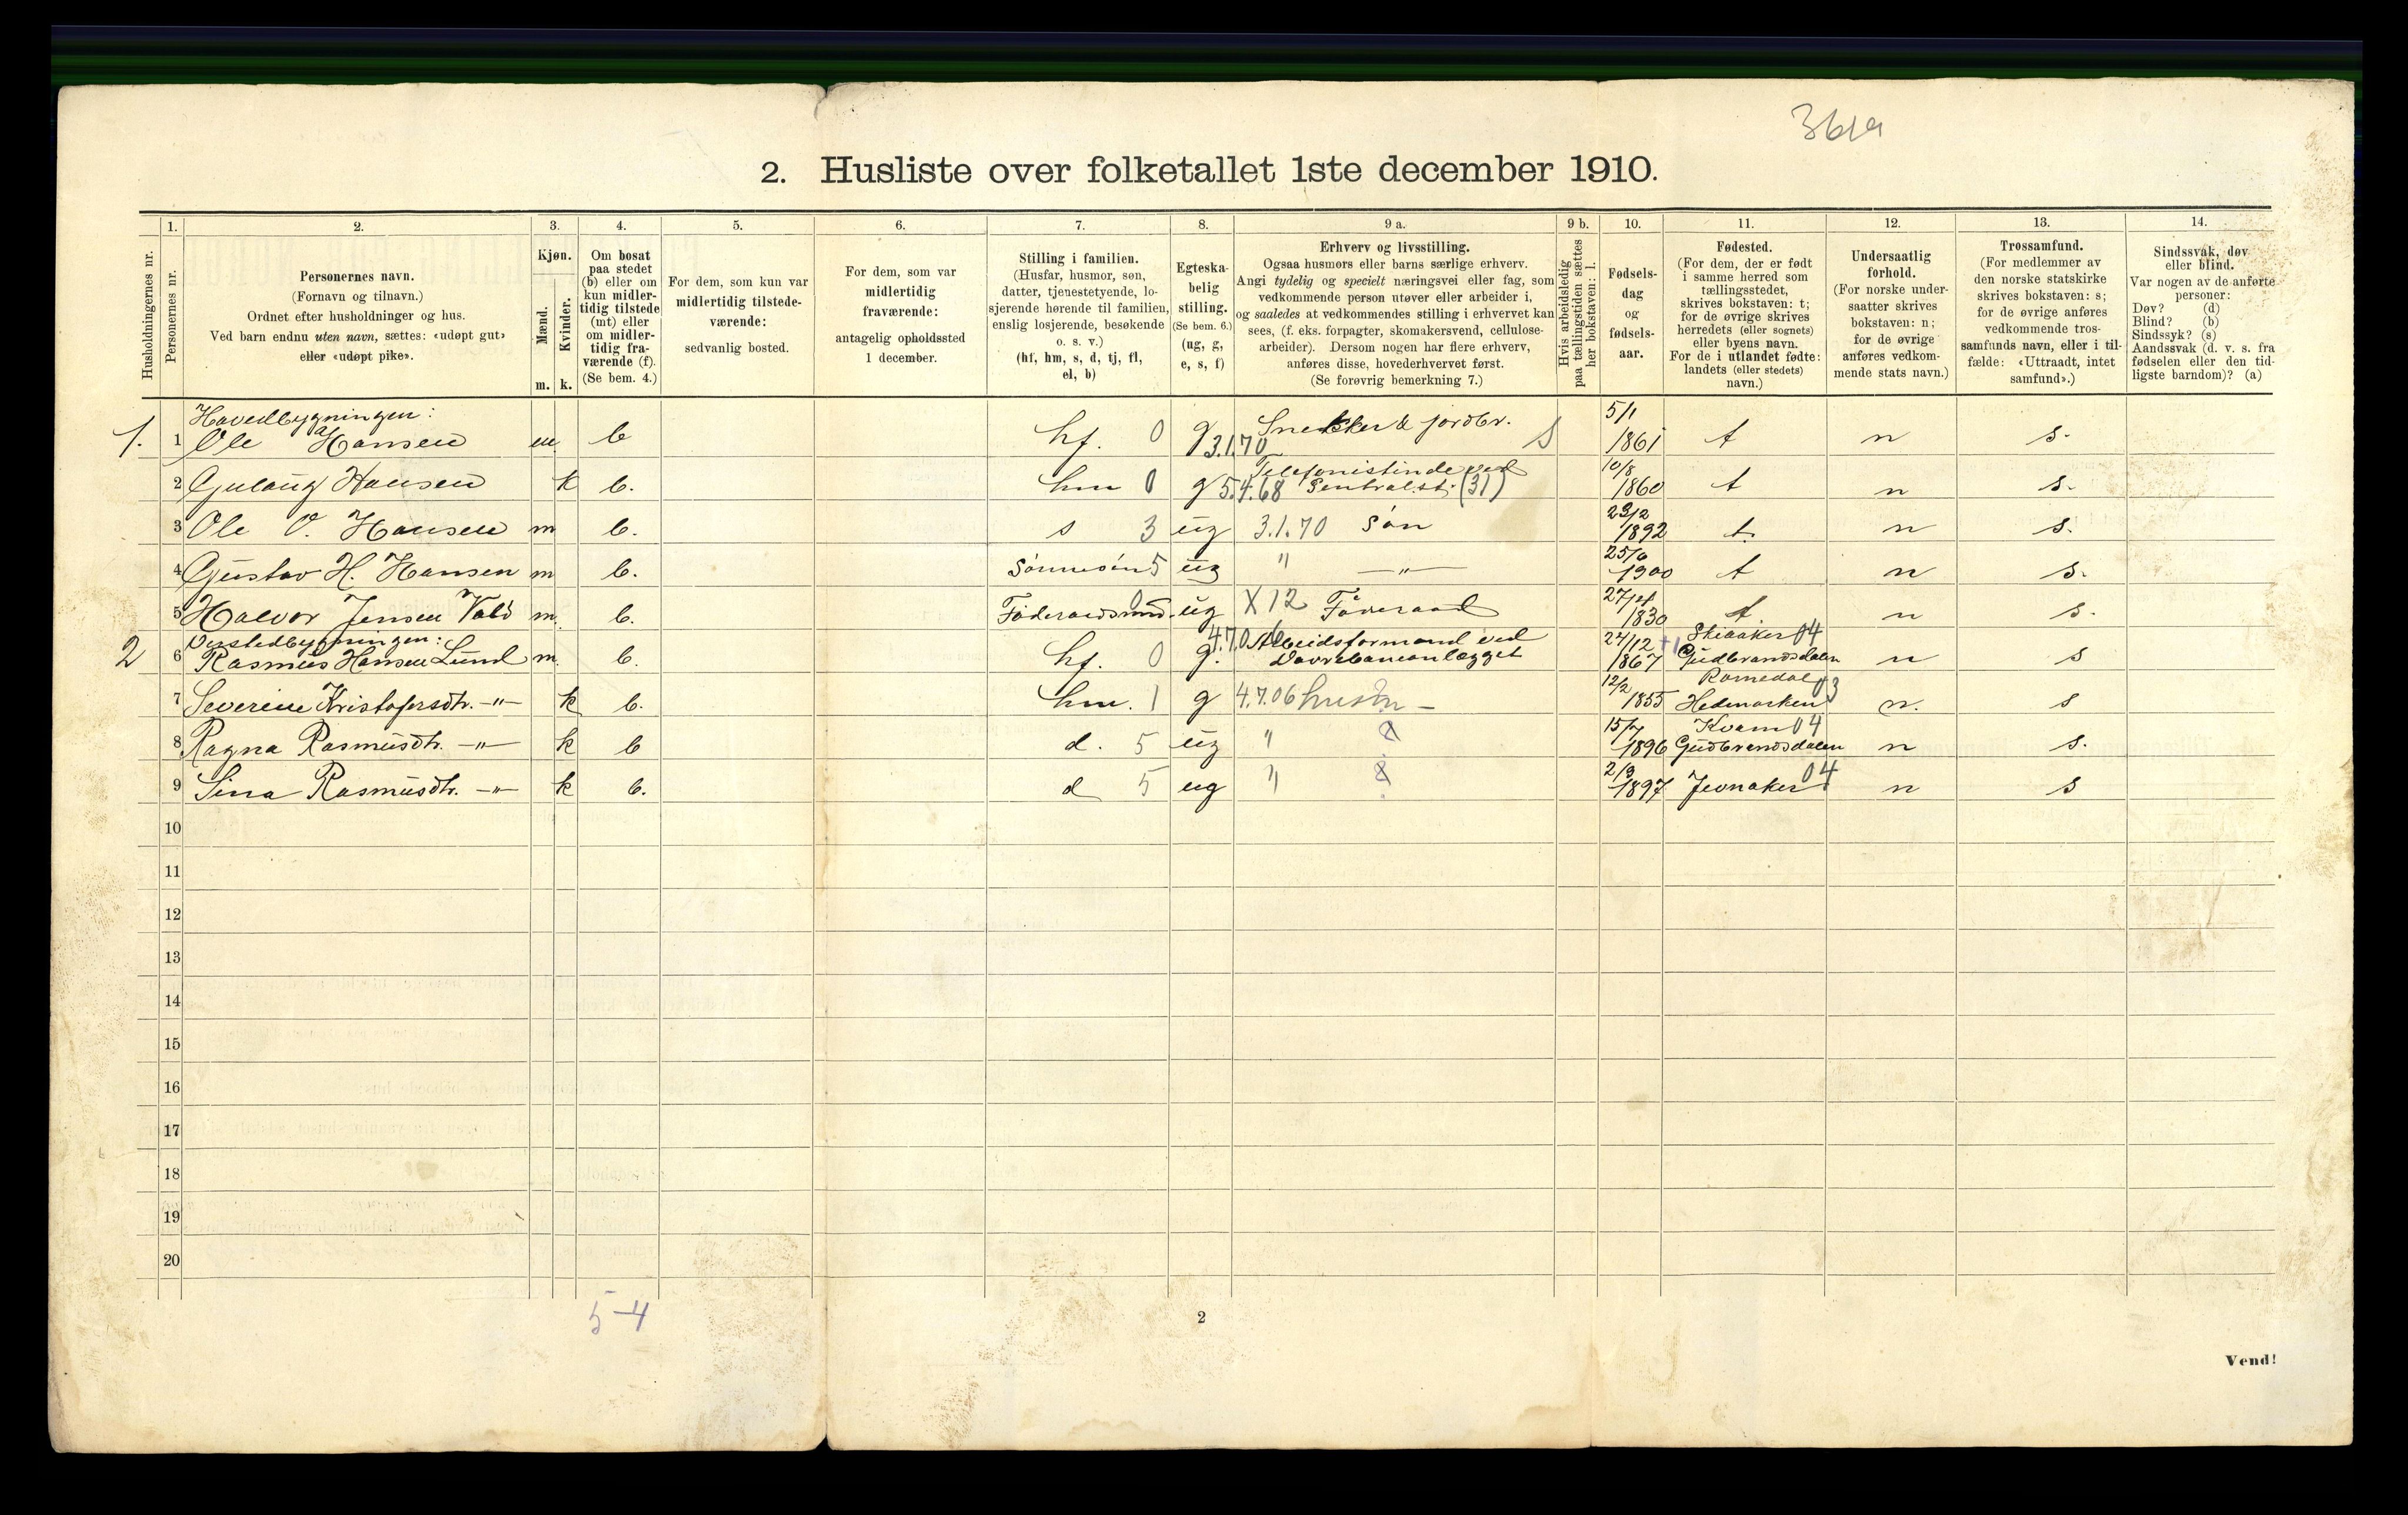 2. Husliste over folketallet 1ste december 1910.
Husholdningernes nr.
1.
Personernes nr.
2.
Personernes navn.
(Fornavn og tilnavn.)
Ordnet efter husholdninger og hus.
Ved barn endnu uten navn, sættes: «udøpt gut»
eller «udøpt pike».
3.
Kjøn.
Mænd.
Kvinder.
m. k.
4.
Om bosat
paa stedet
(b) eller om
kun midler-
tidig tilstede
(mt) eller
om midler-
tidig fra-
værende (f).
(Se bem. 4.)
5.
For dem, som kun var
midlertidig tilstede-
værende:
sedvanlig bosted.
6.
For dem, som var
midlertidig
fraværende:
antagelig opholdssted
1 december.
7.
Stilling i familien.
(Husfar, husmor, søn,
datter, tjenestetyende, lo-
sjerende hørende til familien,
enslig losjerende, besøkende
o. s. v.)
(hf, hm, s, d, tj, fl,
el, b)
8.
Egteska-
belig
stilling.
(Se bem. 6.)
(ug, g,
e, s, f)
9 a.
Erhverv og livsstilling.
Ogsaa husmors eller barns særlige erhverv.
Angi tydelig og specielt næringsvei eller fag, som
vedkommende person utøver eller arbeider i,
og saaledes at vedkommendes stilling i erhvervet kan
sees, (f. eks. forpagter, skomakersvend, cellulose-
arbeider). Dersom nogen har flere erhverv,
anføres disse, hovederhvervet først.
(Se forøvrig bemerkning 7.)
9 b.
Hvis arbeidsledig
paa tællingstiden sættes
her bokstaven: l.
10.
Fødsels-
dag
og
fødsels-
aar.
11.
Fødested.
(For dem, der er født
i samme herred som
tællingsstedet,
skrives bokstaven: t;
for de øvrige skrives
herredets (eller sognets)
eller byens navn.
For de i utlandet fødte:
landets (eller stedets)
navn.)
12.
Undersaatlig
forhold.
(For norske under-
saatter skrives
bokstaven: n;
for de øvrige
anføres vedkom-
mende stats navn.)
13.
Trossamfund.
(For medlemmer av
den norske statskirke
skrives bokstaven: s;
for de øvrige anføres
vedkommende tros-
samfunds navn, eller i til-
fælde: «Uttraadt, intet
samfund».)
14.
Sindssvak, døv
eller blind.
Var nogen av de anførte
personer:
Døv? (d)
Blind? (b)
Sindssyk? (s)
Aandssvak (d. v. s. fra
fødselen eller den tid-
ligste barndom)? (a)
Hovedbygningen:
1. 1 Ole Hansen m b hf. 0 g 3.1.70 Snekker & jordbr. S 5/1 1861 t n s.
2 Hansen k b. hm 0 g 5.4.68 Telefonistinde ved Sentralst. (31) 10/8 1860 t n s.
3 Ole O. Hansen m b. s 3 ug 3.1.70 Søn 23/2 1892 t. n s.
4 Gustav H. Hansen m b. Sønnesøn 5 ug " —"— 1900 t n s.
5 Halvor Jensen m. b. 0 ug X 12 Føderaad 1830 t n s.
2 6 Rasmus Hansen Lund m. b. hf. 0 g. 4.7.06 Arbeidsformand ved Dovrebaneanlægget 24/12 1867 Skiaaker 04 Gudbrandsdalen n s
7 Severine Kristofersdtr. —"— k b. hm. 1 g 4.7.06 12/2 1855 Romedal 03 Hedmarken n. s
8 Ragna Rasmusdtr. —"— k b d. 5 ug " 1896 Kvam 04 Gudbrandsdalen n s.
9 Sina Rasmusdtr. —"— k b. d 5 ug " 2/9 1897 Jevnaker 04 n s
10
11
12
13
14
15
16
17
18
19
20
5-4
2
Vend!